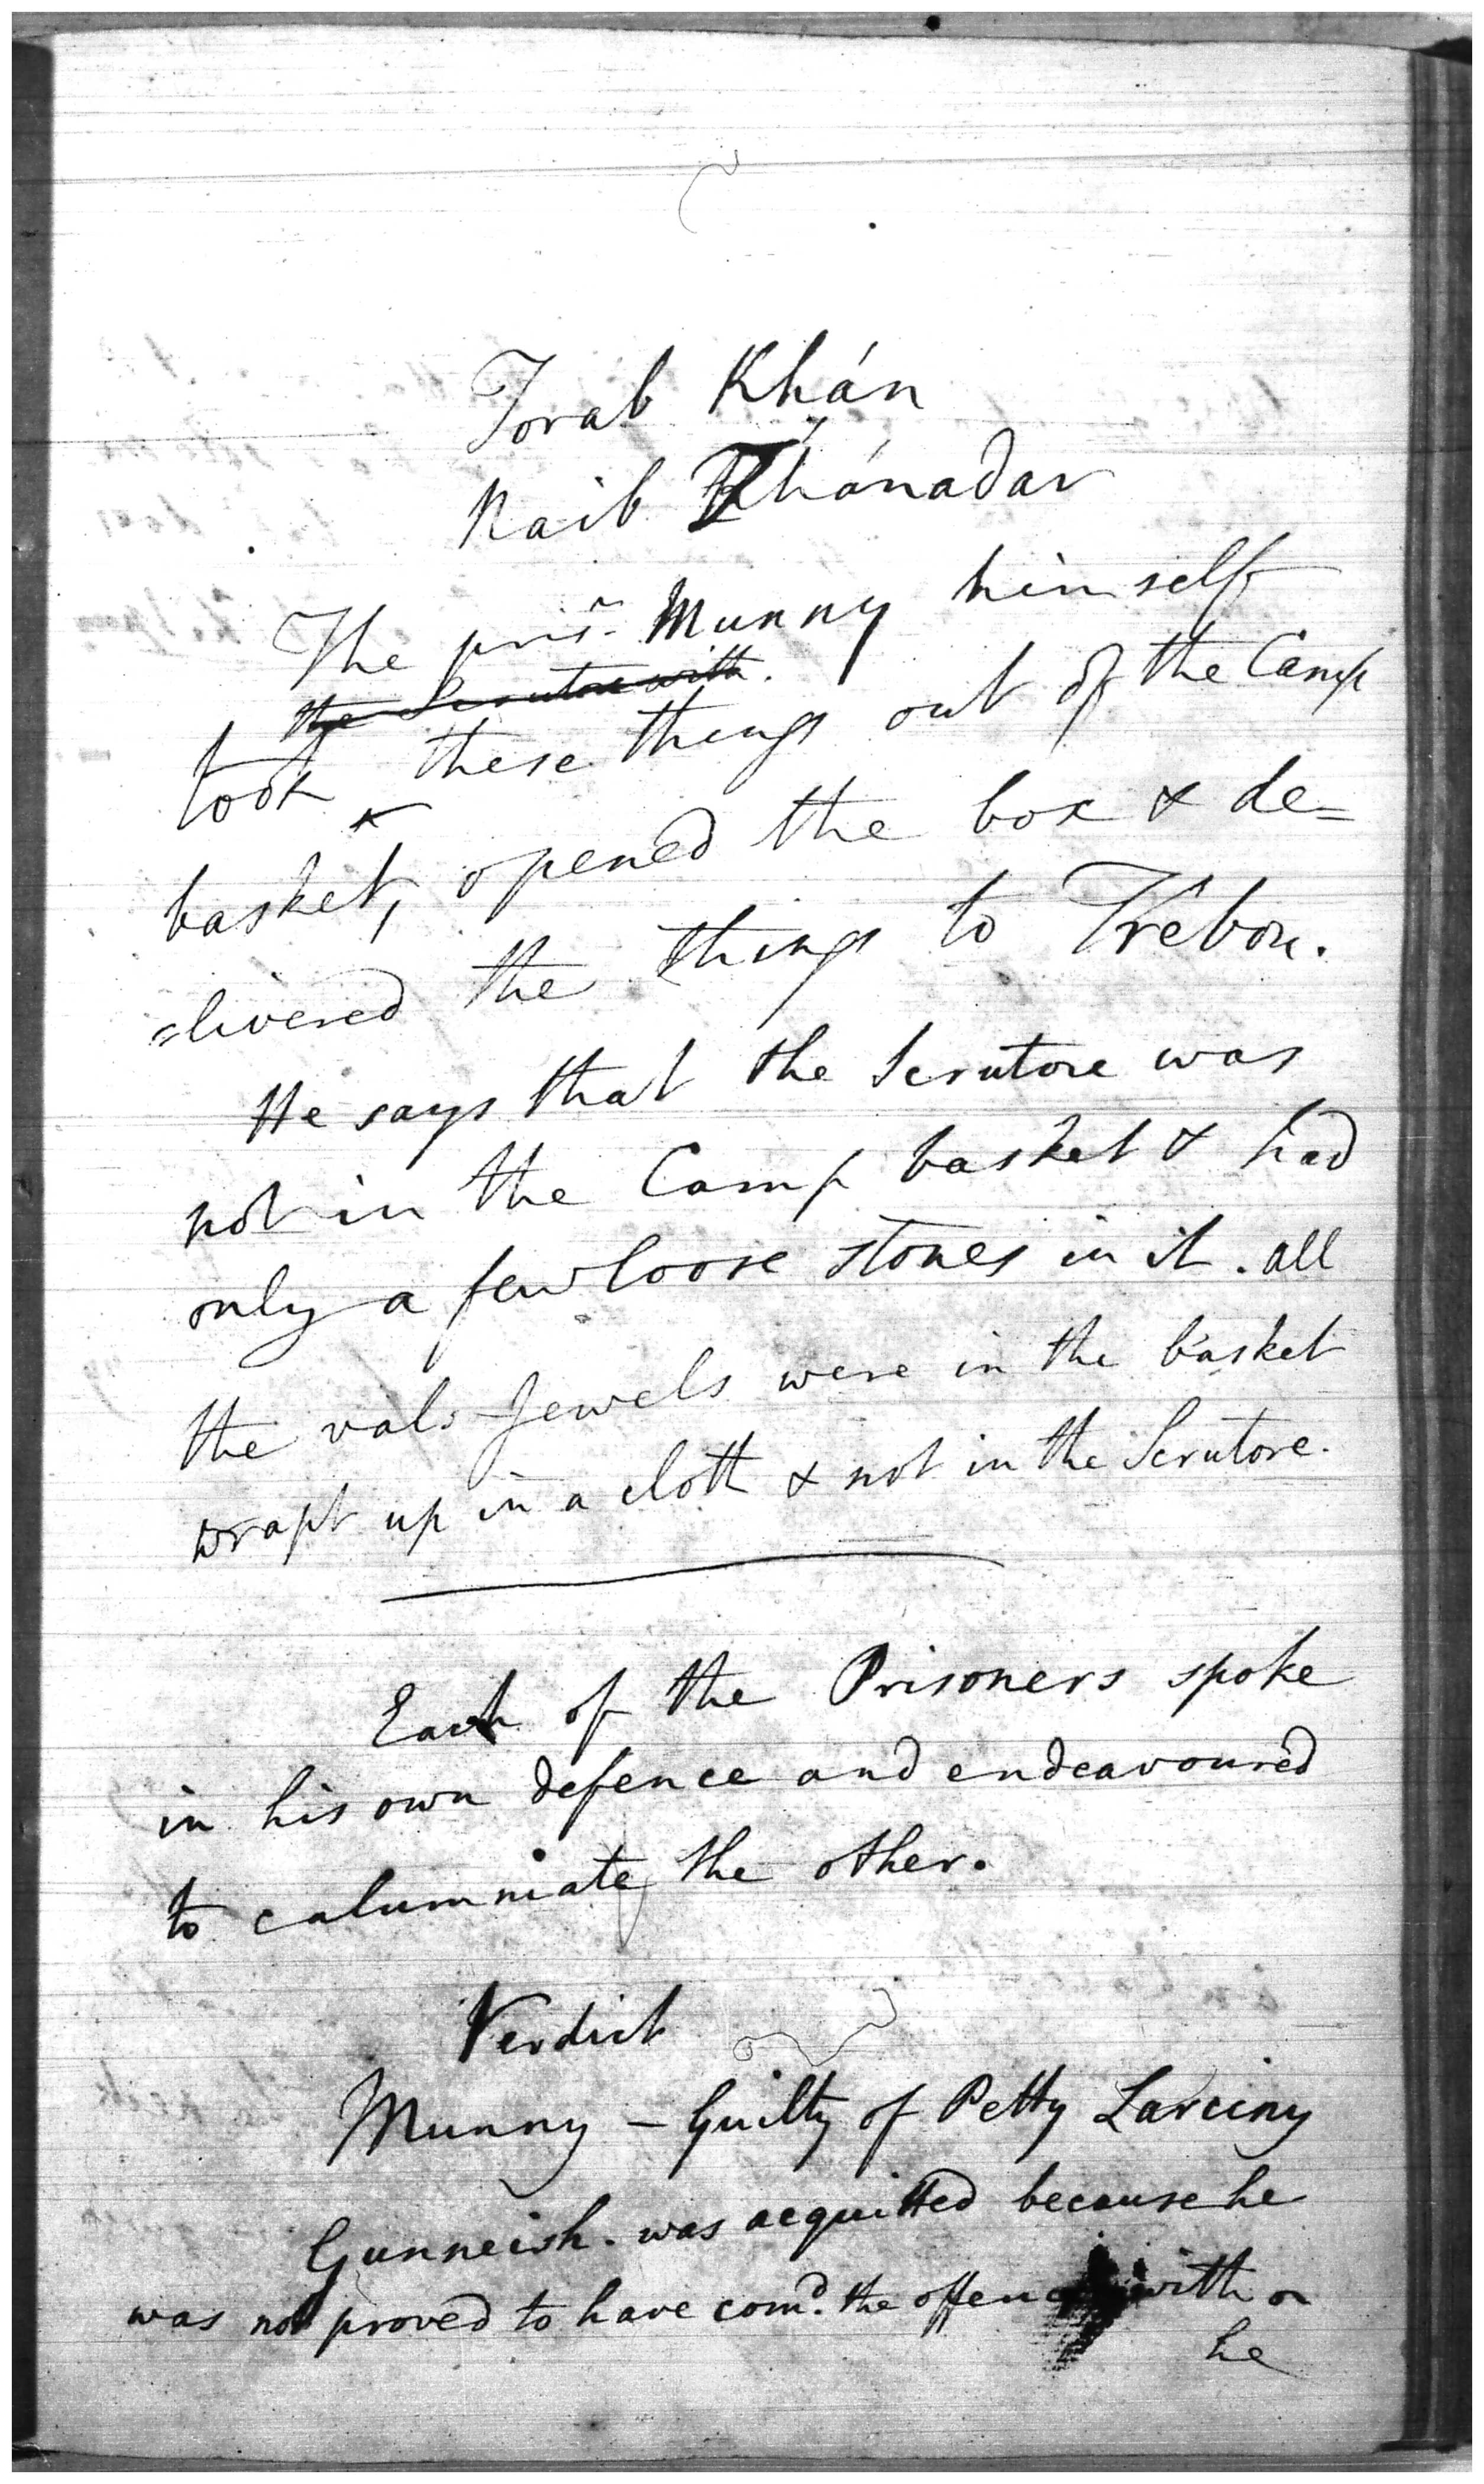 Torab Khán
Naib Thánadar
The prisr. Munny himself
the Scrutore with.
took these things out of the Camp
basket, opened the box & de=
=livered the things to Trebon.
He says that the Scrutore was
not in the Camp basket & had
only a few loose stones in it. all
the val: Jewels were in the basket
wrapt up in a cloth & not in the Scrutore.
Each of the Prisoners spoke
in his own defence and endeavoured
to calumniate the other.
Verdict
Munny - Guilty of Petty Larciny
Gunneish. was acquitted because he
was not proved to have comd. the offence with
he